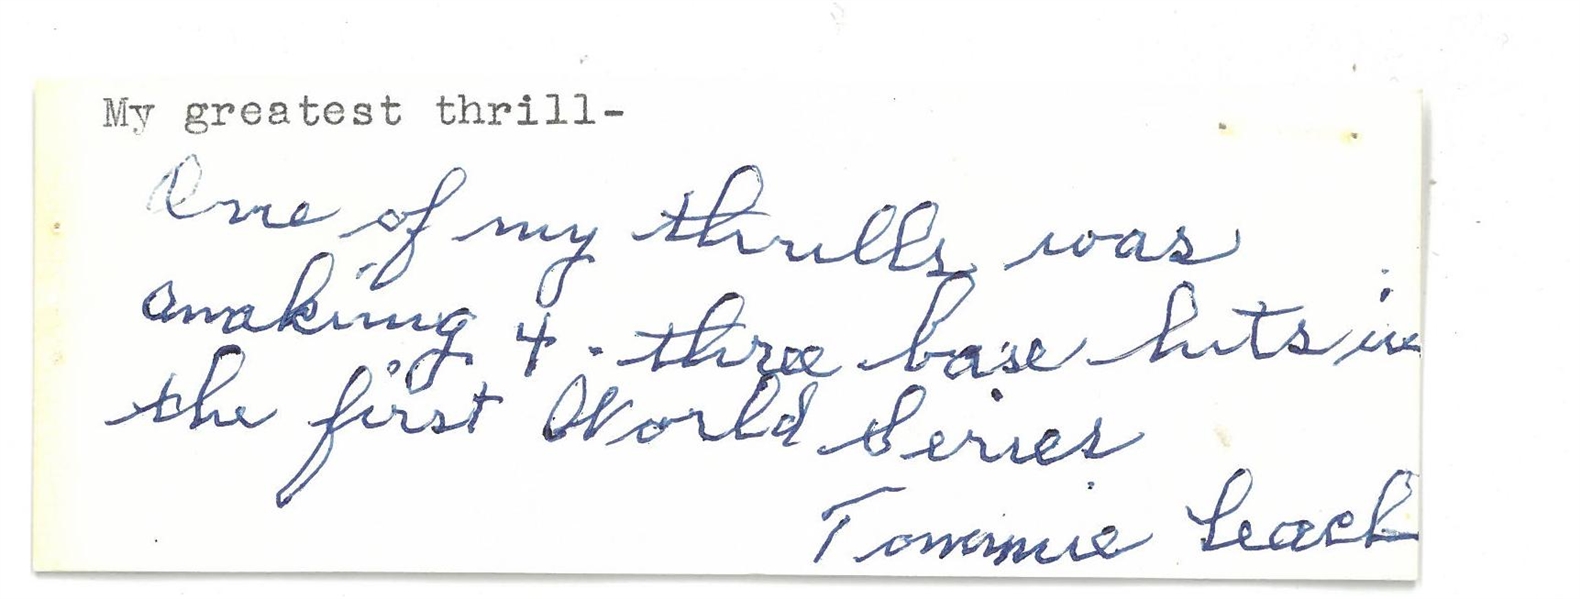 My greatest thrill-
One of my thrills was
making 4 - three base hits in
the first World Series
Tommie Leach